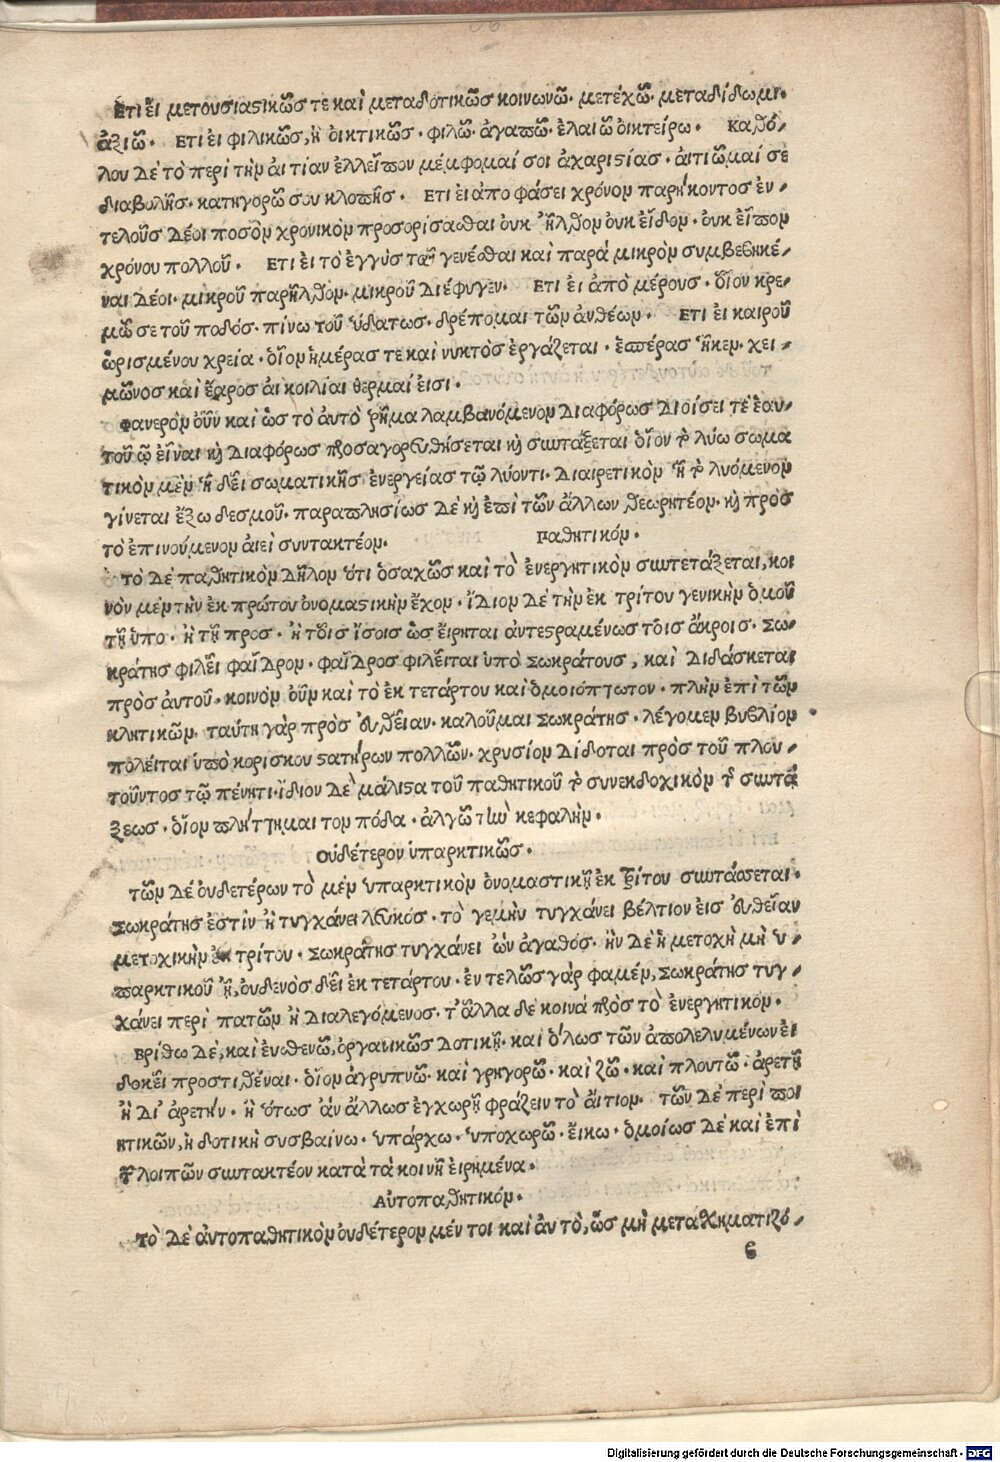 Ετι ἐι μετουσιαστικῶς τε καὶ μεταδοτικῶς κοινωνῶ· μετέχῶ· μεταδίδωμι·
ἀξιῶ· Ετι ἐι φιλικῶς, ἢ ὀικτικῶς· φιλῶ· ἀγαπῶ· ἐλαιῶ ὀικτείρω· Καθό-
λου δὲ τὸ περὶ τὴν ἀιτίαν ἐλλεῖπον μέμφομαί σοι ἀχαριστίας· ἀιτιῶμαί σε
διαβολῆς· κατηγορῶ σου κλοπῆς· Ετι ἐι ἀποφάσει χρόνον παρήκοντος ἐν-
τελοῦς δέοι ποσὸν χρονικὸν προσορίσασθαι ὀυκ ἦλθον ὀυκ εἶδον· ὀυκ εἶπον
χρόνου πολλοῦ· Ετι ἐι τὸ ἐγγὺς τοῦ γενέσθαι καὶ παρά μικρὸν συμβεβηκέ-
ναι δέοι· μικροῦ παρῆλθον· μικροῦ διέφυγεν· Ετι ἐι ἀπὸ μέρους· ὅιον κρε-
μῶ σε τοῦ ποδός· πίνω τοῦ ὕδατως· δρέπομαι τῶν ἀνθέων· Ετι ἐι καιροῦ
ὡρισμένου χρεία· ὅιον ἡμέρας τε καὶ νυκτὸς ἐργάζεται· ἑσπέρας ἧκεν· χει-
μῶνος καὶ ἔαρος ἁι κοιλίαι θερμαί ἐισι·
Φανερὸν ὀῦν καὶ ὡς τὸ ἀυτὸ ῥῆμα λαμβανόμενον διαφόρως διοίσει τὲ ἑαυ-
τοῦ ᾧ εἶναι κὴ διαφόρως προσαγορευθήσεται κὴ συντάξεται ὅιον τὸ λύω σωμα
τικὸν μὲν ἢ δεῖ σωματικῆς ἐνεργείας τῷ λύοντι· διαιρετικὸν ἢ τὸ λυόμενον
γίνεται ἔξω δεσμοῦ· παραπλησίως δὲ κὴ ἐπὶ τῶν ἄλλων θεωρητέον· κὴ πρὸς
τὸ ἐπινούμενον ἀιεὶ συντακτέον· Παθητικόν·
τὸ δὲ παθητικὸν δῆλον ὅτι ὁσαχῶς καὶ τὸ ἐνεργητικὸν συντετάξεται, κοι
νὸν μὲν τὴν ἐκ πρώτου ὀνομαστικὴν ἔχον· ἴδιον δὲ τὴν ἐκ τρίτου γενικὴν ὁμοῦ
τῇ ὑπο· ἢ τῇ προς· ἢ τοῖς ἴσοις ὡς ἔιρηται ἀντεστραμένως τοῖς ἄκροις· Σω-
κράτης φιλεῖ φαῖδρον· φαῖδρος φιλεῖται ὑπὸ Σωκράτους, καὶ διδάσκεται
πρὸς ἀυτοῦ· κοινὸν ὀῦν καὶ τὸ ἐκ τετάρτου καὶ ὁμοιόπτωτον· πλὴν ἐπὶ τῶν
κλητικῶν· ταύτη γὰρ πρὸς ἐυθεῖαν· καλοῦμαι Σωκράτης· λέγομεν βυβλίον
πωλεῖται ὑπὸ κορισκου στατήρων πολλῶν· χρυσίον δίδοται πρὸς τοῦ πλου-
τοῦντος τῷ πένητι· ἴδιον δὲ μάλιστα τοῦ παθητικοῦ τὸ συνεκδοχικὸν τῆς συντά
ξεως· ὅιον πλήττημαι τον πόδα· ἀλγῶ τὴν κεφαλήν·
Ουδέτερον ὑπαρκτικῶς·
τῶν δὲ ὀυδετέρων τὸ μὲν ὑπαρκτικὸν ὀνομαστικῇ ἐκ τρίτου συντάσσεται·
Σωκράτης ἐστὶν ἢ τυγχάνει λευκός· τὸ γεμὴν τυγχάνει βέλτιον ἐις ἐυθεῖαν
μετοχικὴν ἐκ τρίτου· Σωκράτης τυγχάνει ὢν ἀγαθός· ἢν δὲ ἡ μετοχὴ μὴ ὑ-
παρκτικοῦ ᾖ, ὀυδενὸς δεῖ ἐκ τετάρτου· ἐντελῶς γὰρ φαμέν, Σωκράτης τυγ-
χάνει περὶ πατῶν ἢ διαλεγόμενος· τ' ἄλλα δὲ κοινά πρὸς τὸ ἐνεργητικόν·
Βρίθω δὲ, καὶ ἐυθενῶ, ὀργανικῶς δοτικῇ· καὶ ὅλως τῶν ἀπολελυμένων ἐι
δοκεῖ προστιθέναι· ὅιον ἀγρυπνῶ· καὶ γρηγορῶ· καὶ ζῶ· καὶ πλουτῶ· ἀρετῇ
ἢ δι' ἀρετήν· ἢ ὅτως ἂν ἄλλως ἐγχωρῇ φράζειν τὸ ἄιτιον· τῶν δὲ περὶ ποι
ητικῶν, ἡ δοτικὴ συσβαίνω· ὑπάρχω· ὑποχωρῶ· ἔικω· ὁμοίως δὲ καὶ ἐπὶ
τῶν λοιπῶν συντακτέον κατὰ τὰ κοινῇ ἐιρημένα·
Αὐτοπαθητικόν·
τὸ δὲ ἀυτοπαθητικὸν ὀυδέτερον μέν τοι καὶ ἀν τὸ, ὥς μὴ μεταχηματιζό-
ϐ
Digitalisierung gefördert durch die Deutsche Forschungsgemeinschaft - DFG